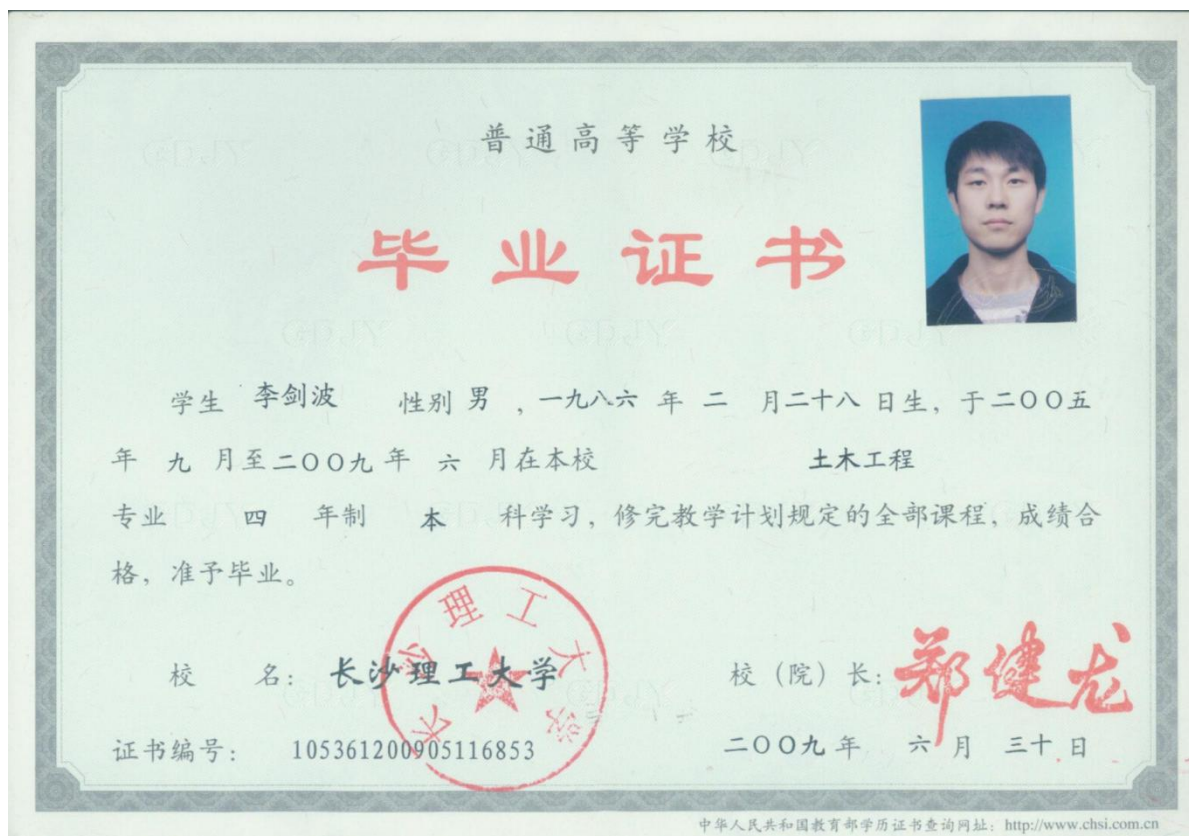 普通高等学校
毕业证书
学生 李剑波 性别 男 ，一九八六 年 二 月二十八 日生，于二〇〇五
年 九 月至二〇〇九 年 六 月在本校 土木工程
专业 四 年制 本 科学习，修完教学计划规定的全部课程，成绩合
格，准予毕业。
长沙理工大学
校 名：长沙理工大学 校（院）长：郑健龙
证书编号： 105361200905116853 二〇〇九 年 六 月 三十 日
中华人民共和国教育部学历证书查询网址：http://www.chsi.com.cn